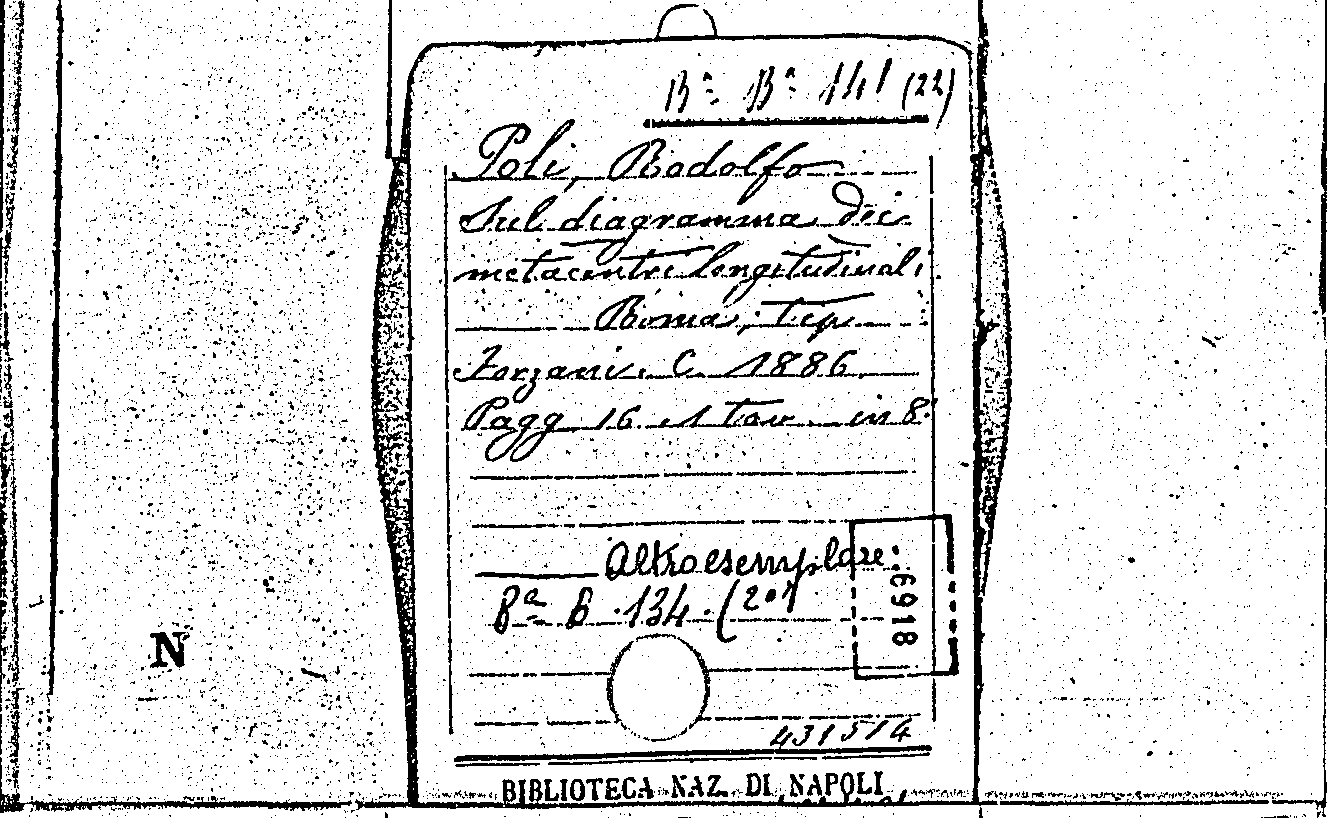 Bª Bª 141 (22)
Poli, Rodolfo
Sul diagramma dei
metacentri longitudinali.
Roma, tip
Forzani. C. 1886
Pagg 16. 1 tav. in 8º
Altro esemplare:
Bª B. 134. (20)
6918
N
431514
BIBLIOTECA NAZ. DI NAPOLI